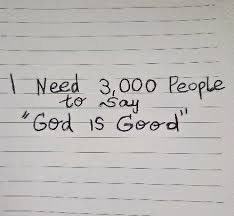 I Need 3,000 People
to Say
"God is Good"